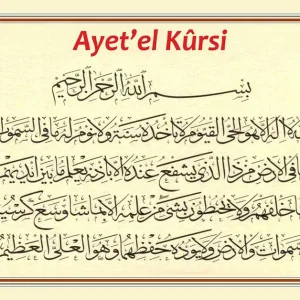 Ayet’el Kûrsi
بسم الله الرحمن الرحيم
له اله الا هو الحي القيوم لا تاخذه سنة ولا نوم له ما في السموا
ما في الارض من ذا الذي يشفع عنده الا باذنه يعلم ما بين ايديهم
ما خلفهم ولا يحيطون بشيء من علمه الا بما شاء وسع كرسيه
السموات والارض ولا يوده حفظهما وهو العلي العظيم